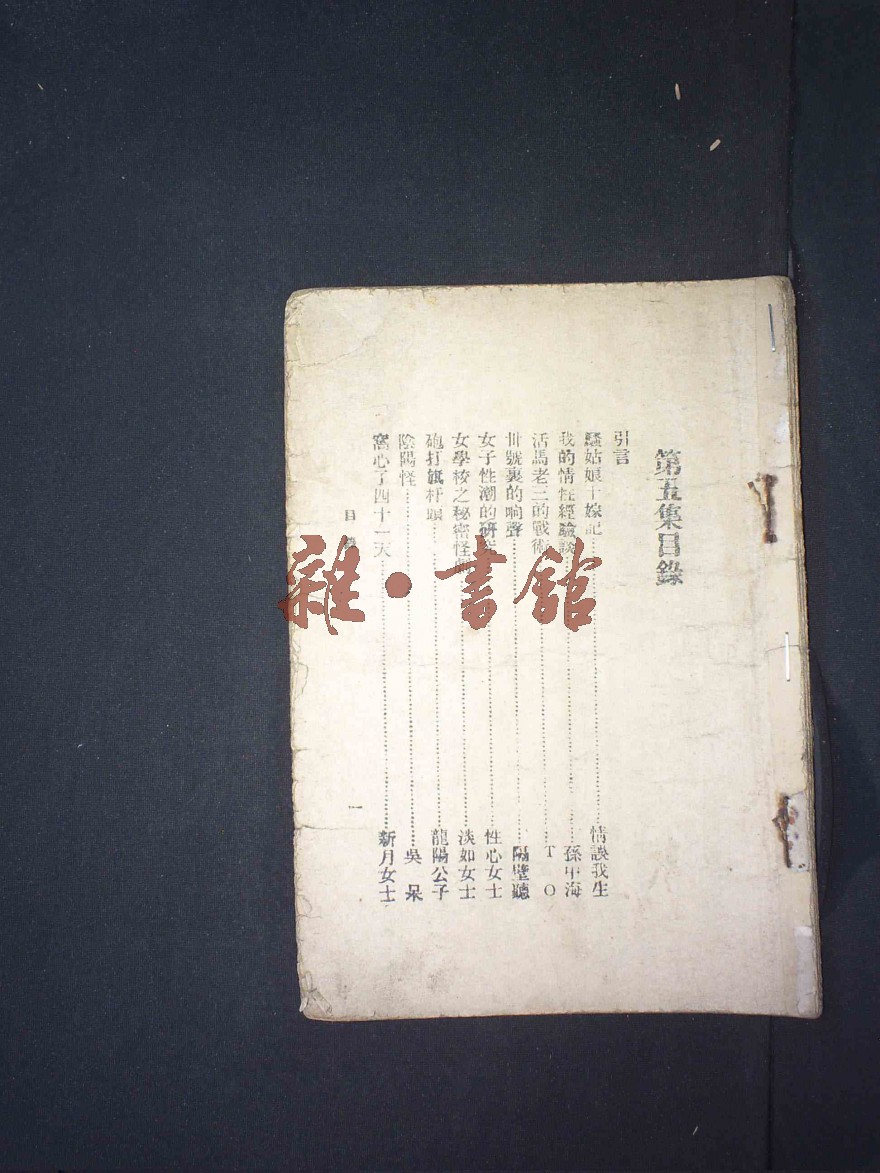 第五集目錄
引言
騷姑娘十嫁記……情談我生
我的情性經驗談……孫中海
活馬老三的戰術……T O
卅號裏的响聲……隔壁聽
女子性潮的研究……性心女士
女學校之秘密怪……淡如女士
砲打旗杆頭……龍陽公子
陰陽怪……吳呆
窩心了四十二天……新月女士
目
一
雜·書館